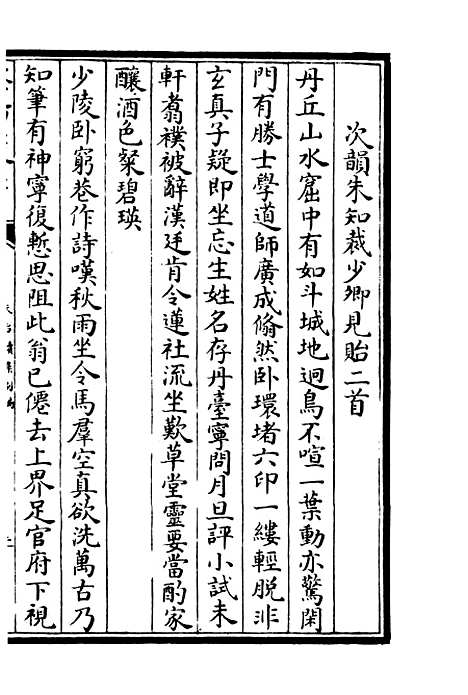 次韻朱知裁少卿見貽二首
丹丘山水窟中有如斗城地迥鳥不喧一葉動亦驚閑
門有勝士學道師廣成翛然卧環堵六印一縷輕脱非
玄真子疑即坐忘生姓名存丹臺寧問月旦評小試未
軒翥襆被辭漢廷肯令蓮社流坐歎草堂靈要當酌家
釀酒色粲碧瑛
少陵卧窮巷作詩嘆秋雨坐令馬羣空真欲洗萬古乃
知筆有神寧復慙思阻此翁已僊去上界足官府下視